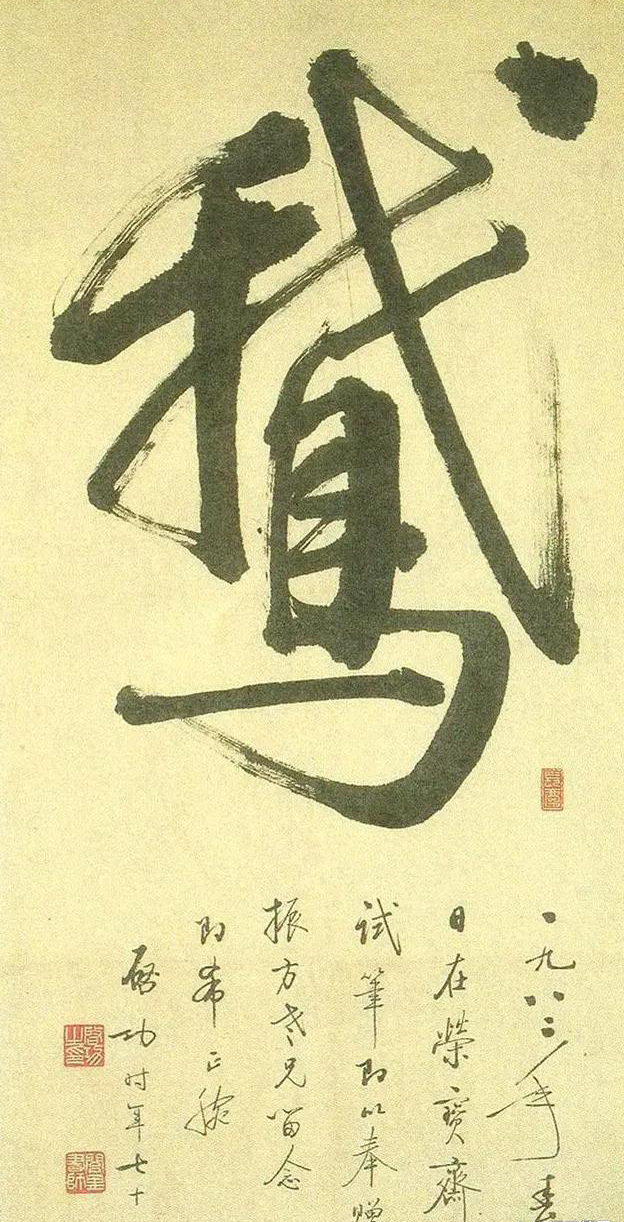 鵝
一九八二年春
日在榮寶齋
试筆即以奉贈
振方老兄留念
即希正腕
啓功时年七十